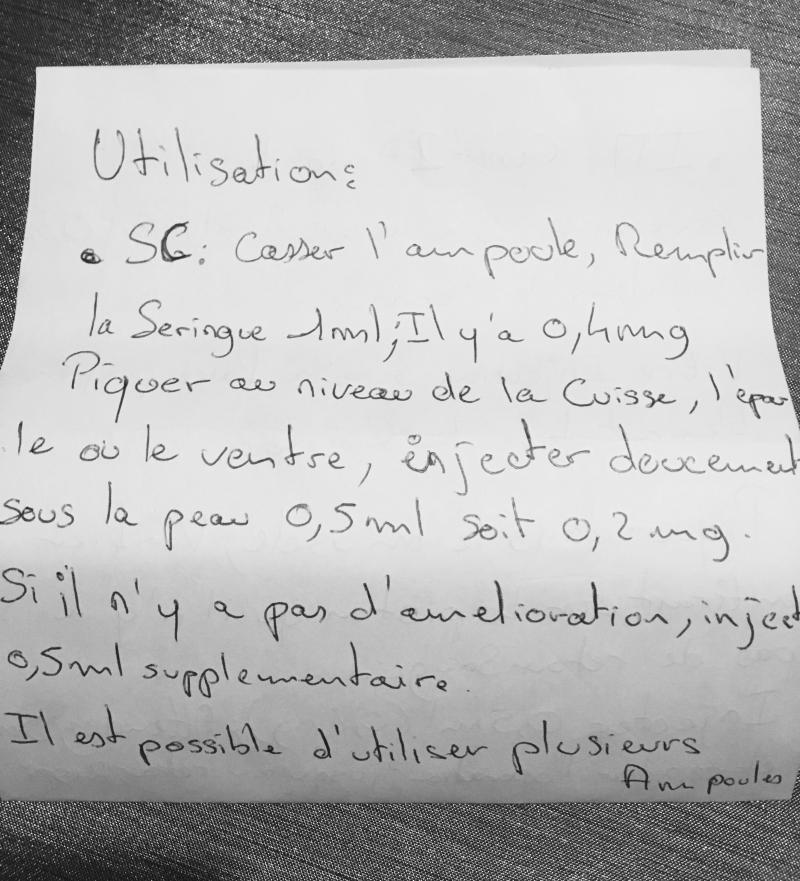 Utilisation:
• SC: Casser l'ampoule, Remplir
la Seringue 1ml; Il y'a 0,4mg
Piquer au niveau de la Cuisse, l'épau
le ou le ventre, injecter doucement
sous la peau 0,5ml soit 0,2 mg.
Si il n'y a pas d'amelioration, inject
0,5ml supplementaire.
Il est possible d'utiliser plusieurs
Ampoules